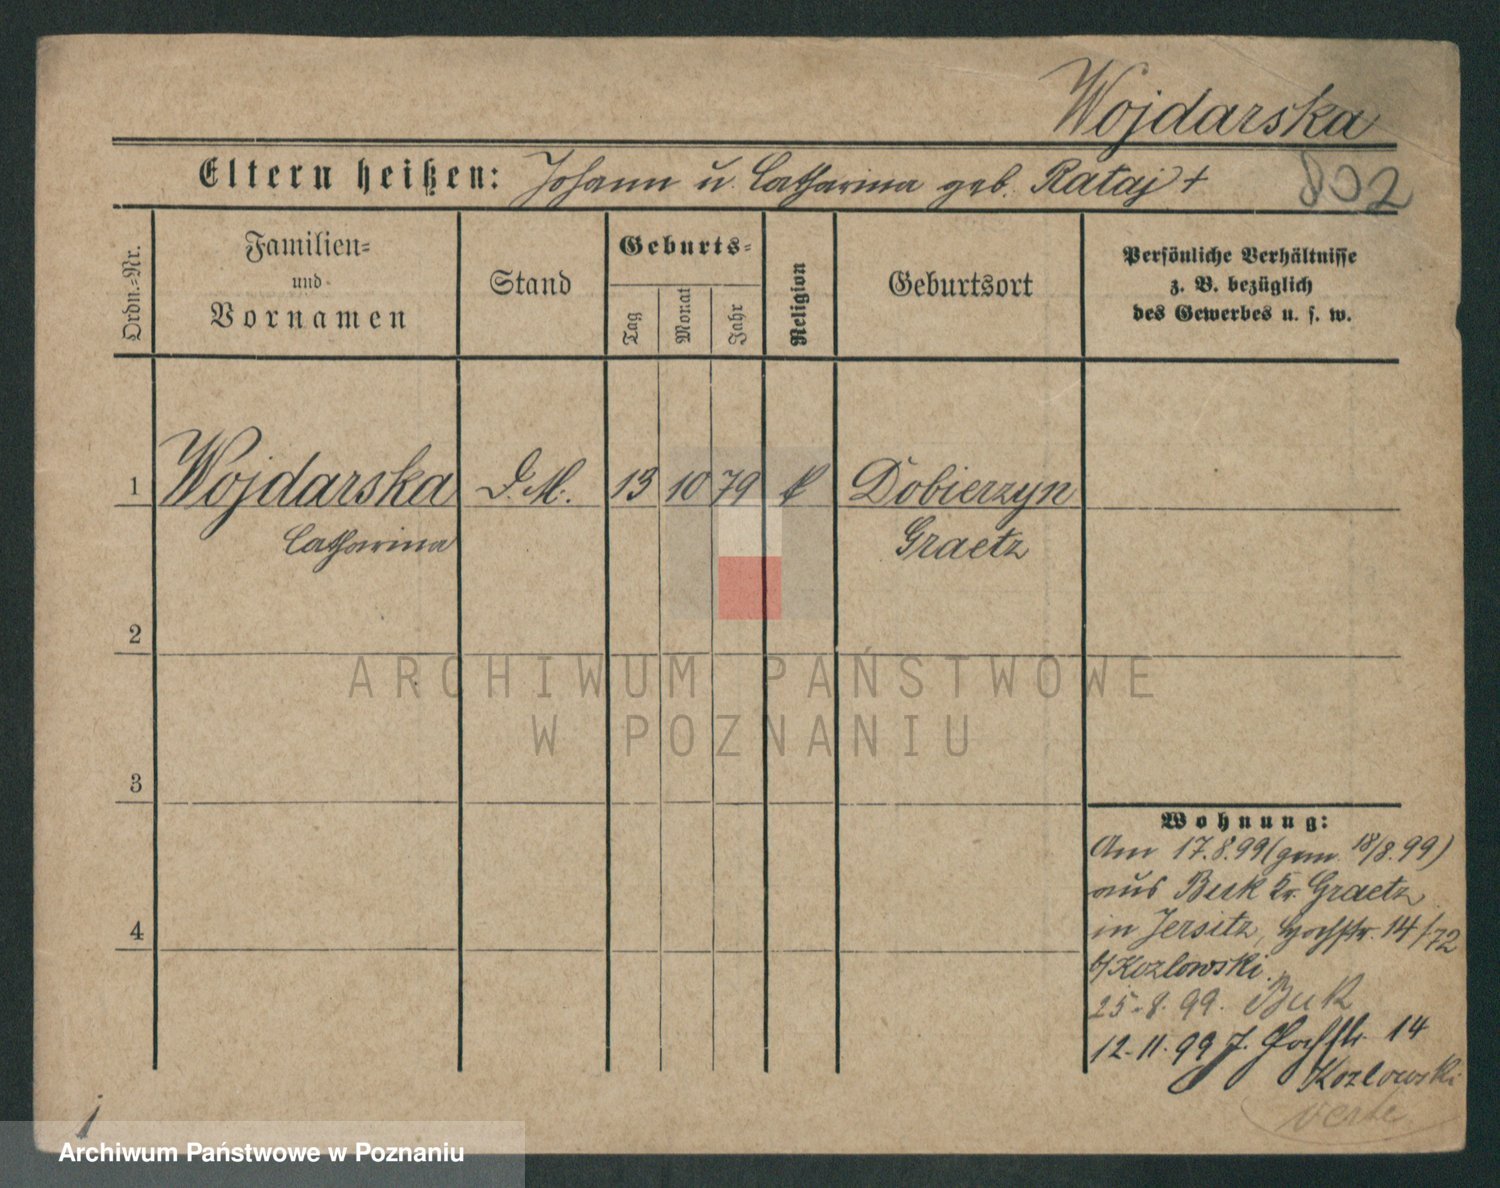 Wojdarska
802
Eltern heißen: Johann u. Catharina geb. Rataj +
Ordn.=Nr.
Familien=
und
Vornamen
Stand
Geburts=
Tag
Monat
Jahr
Religion
Geburtsort
Persönliche Verhältnisse
z. B. bezüglich
des Gewerbes u. s. w.
1 Wojdarska D. M. 13 10 79 k Dobierzyn
Catharina Graetz
2
3
4
Wohnung:
Am 17.8.99 (gem. 18/8.99)
aus Buk Kr. Graetz
in Jersitz, Hochstr. 14/72
b/Kozlowski.
25.8.99. Buk
12.11.99 J. Hochstr. 14
Kozlowski
verte
ARCHIWUM PAŃSTWOWE
W POZNANIU
Archiwum Państwowe w Poznaniu